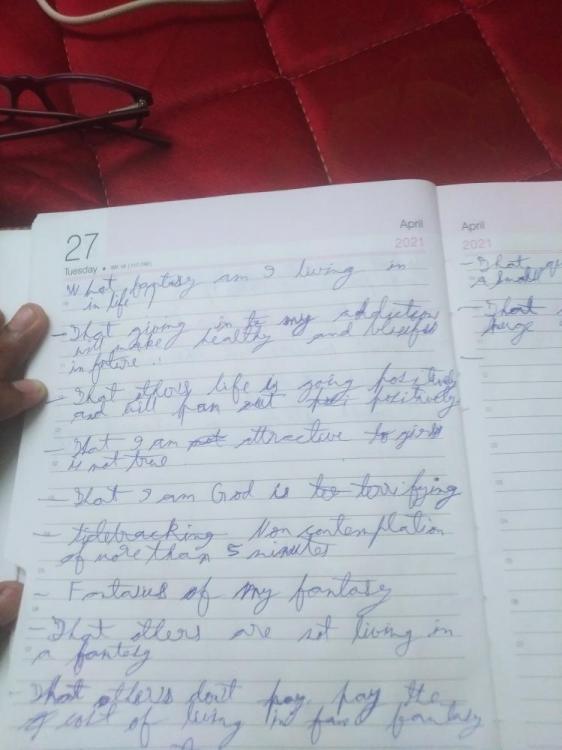 27
Tuesday
April
2021
What fantasy am I living in
in life?
- That giving in to my addiction
will make healthy and blissful
in future.
- That others life is going positively
and will pan out positively
- That I am not attractive to girls
is not true
- That I am God is too terrifying
- sidetracking Non contemplation
of more than 5 minutes
- Fantasies of my fantasy
- That others are not living in
a fantasy
- That others dont pay pay the
cost of living in fantasy
April
2021
- That
A
- That